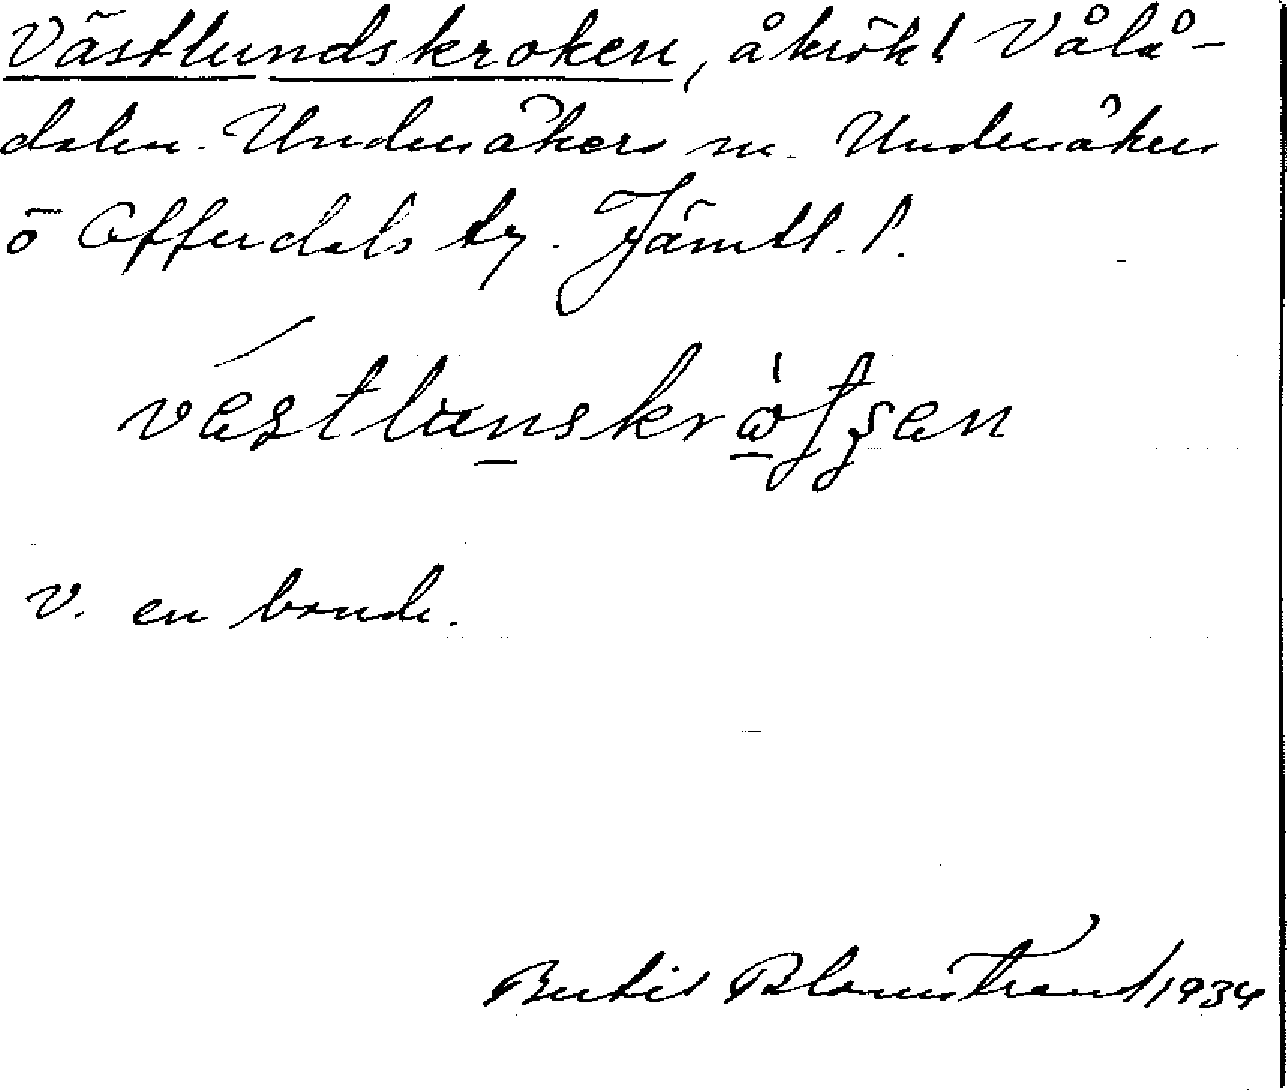 Västlundskroken, åkrökt Vålå-
dalen. Undersåkers sn. Undersåkers
o Offerdals tg. Jämtl. l.
västlunskrotʃʂen
V. en bonde.
Bertil Blomstrand 1934